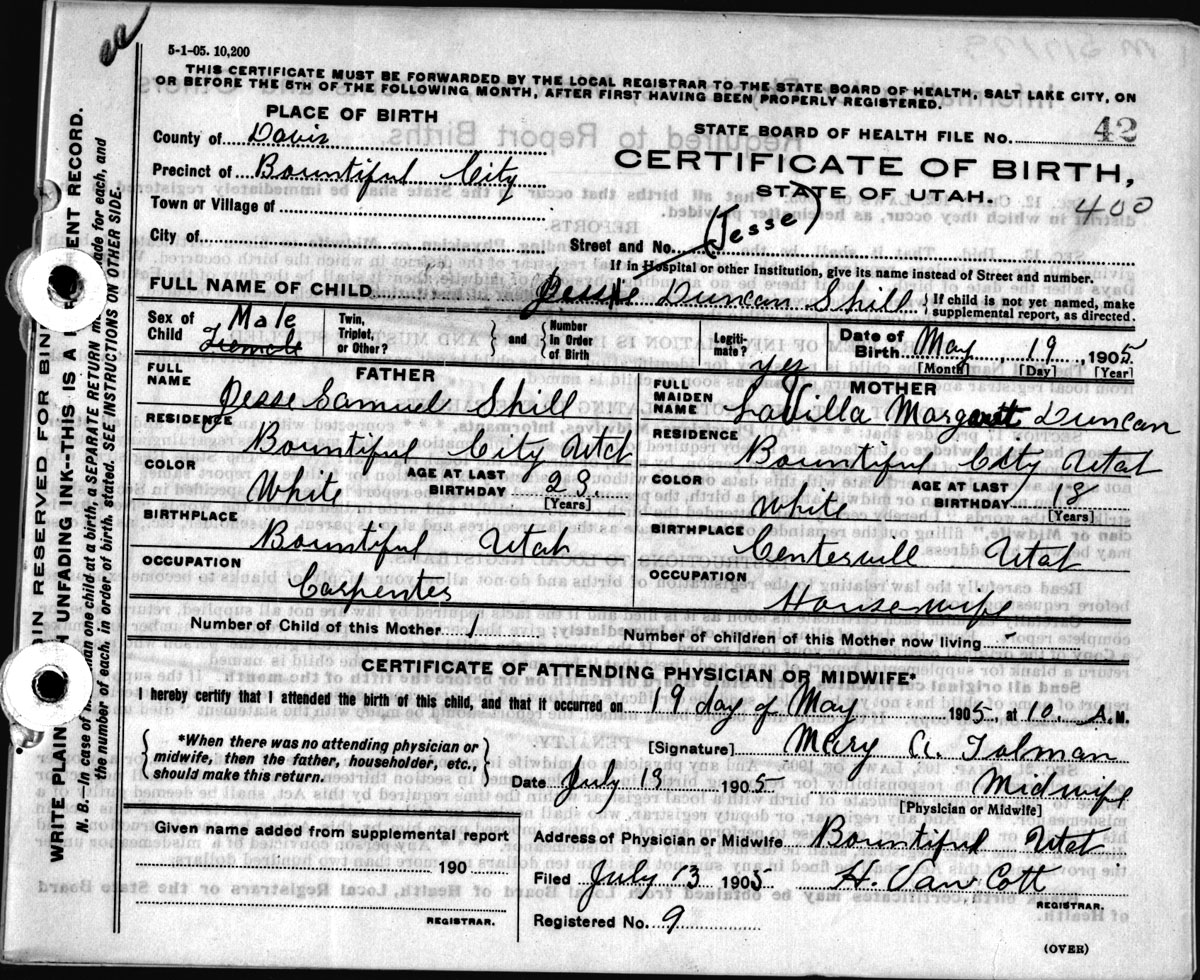 5-1-05. 10,200
THIS CERTIFICATE MUST BE FORWARDED BY THE LOCAL REGISTRAR TO THE STATE BOARD OF HEALTH, SALT LAKE CITY, ON
OR BEFORE THE 5TH OF THE FOLLOWING MONTH, AFTER FIRST HAVING BEEN PROPERLY REGISTERED.
PLACE OF BIRTH
County of Davis
Precinct of Bountiful City
Town or Village of
City of
STATE BOARD OF HEALTH FILE NO. 42
CERTIFICATE OF BIRTH,
STATE OF UTAH.
400
Street and No.
(Jesse)
If in Hospital or other Institution, give its name instead of Street and number.
FULL NAME OF CHILD Jessie Duncan Shill
If child is not yet named, make
supplemental report, as directed.
Sex of Child Male Female
Twin, Triplet, or Other? and Number In Order of Birth
Legiti- mate? yes
Date of Birth May 19 1905
[Month] [Day] [Year]
FATHER
FULL NAME Jesse Samuel Shill
RESIDENCE Bountiful City Utah
COLOR White AGE AT LAST BIRTHDAY 23.
[Years]
BIRTHPLACE Bountiful Utah
OCCUPATION Carpenter
MOTHER
FULL MAIDEN NAME LaVilla Margarett Duncan
RESIDENCE Bountiful City Utah
COLOR White AGE AT LAST BIRTHDAY 18
[Years]
BIRTHPLACE Centervill Utah
OCCUPATION Housewife
Number of Child of this Mother 1
Number of children of this Mother now living
CERTIFICATE OF ATTENDING PHYSICIAN OR MIDWIFE*
I hereby certify that I attended the birth of this child, and that it occurred on 19 day of May 1905, at 10. A.M.
*When there was no attending physician or
midwife, then the father, householder, etc.,
should make this return.
[Signature] Mary A. Tolman
Date July 13 1905 Midwife
[Physician or Midwife]
Given name added from supplemental report
190
REGISTRAR.
Address of Physician or Midwife Bountiful Utah
Filed July 13 1905 H. Van Cott
REGISTRAR.
Registered No. 9
(OVER)
WRITE PLAIN UNFADING INK--THIS IS A ENT RECORD.
N. B.--In case of than one child at a birth, a SEPARATE RETURN made for each, and
the number of each, in order of birth, stated. SEE INSTRUCTIONS ON OTHER SIDE.